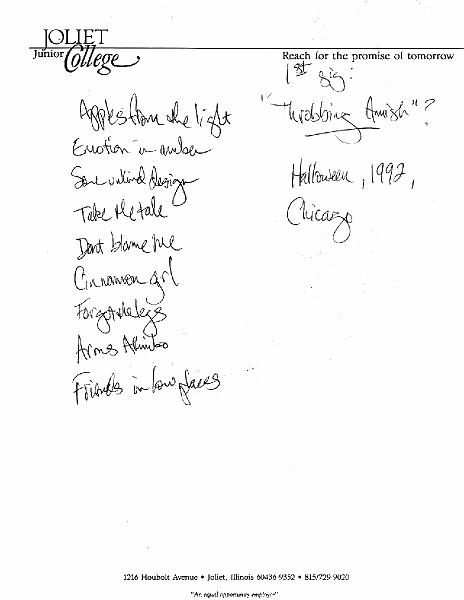 JOLIET
Junior College
Reach for the promise of tomorrow
1st gig:
"Throbbing Amish"?
Halloween, 1992,
Chicago
Apples from the light
Emotion in amber
Some unkind design
Take the tale
Dont blame me
Cinnamon girl
Forgot the legs
Arms Akimbo
Friends in low places
1216 Houbolt Avenue • Joliet, Illinois 60436-9352 • 815/729-9020
"An equal opportunity employer"